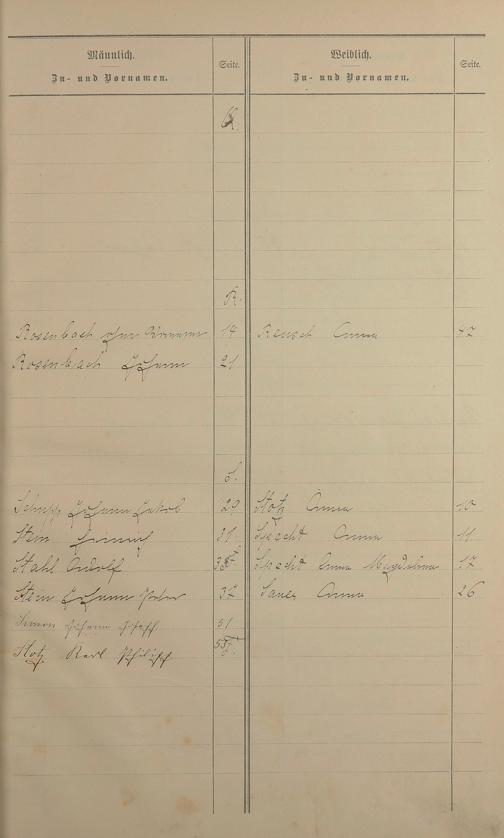 Männlich.
Zu- und Vornamen.
Seite.
Weiblich.
Zu- und Vornamen.
Seite.
Q.
R.
Rosenbach 14 Reusch Anna 47
Rosenbach Johann 21
S.
Schupp Johann Jakob 29 Stotz Anna 10
Stein Heinrich 31 Specht Anna 11
Stahl Adolf Specht Anna Magdalena 17
Stein Johann Peter 37 Sauer Anna 26
Simon Johann Joseph 51
Stotz Karl Philipp